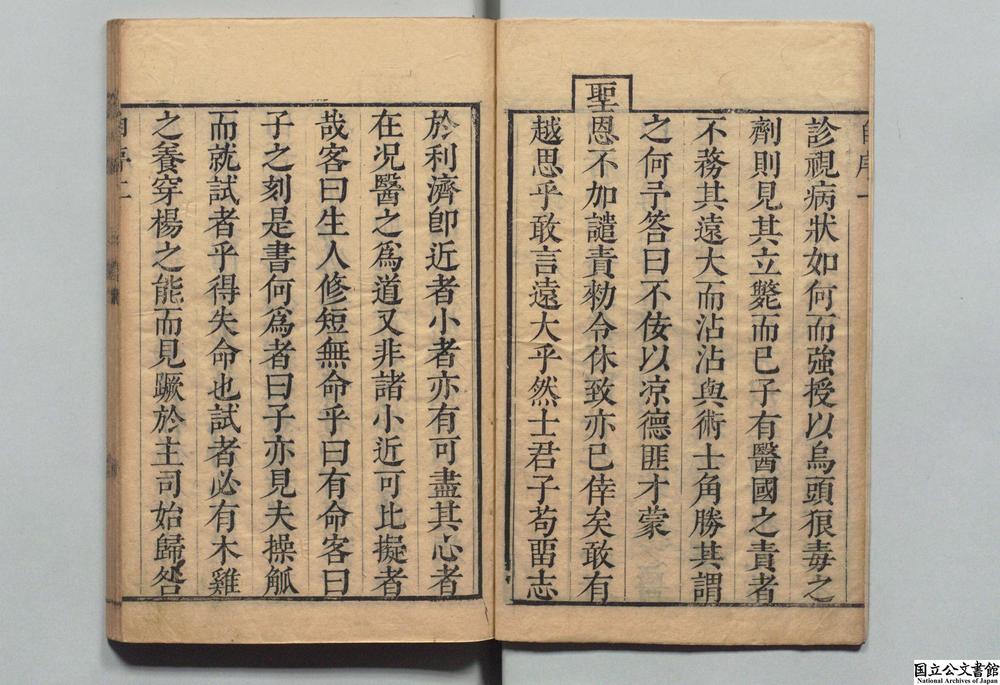 診視病狀如何而強授以烏頭狠毒之
劑則見其立斃而已子有醫國之責者
不務其遠大而沾沾與術士角勝其謂
之何予答曰不佞以凉德匪才蒙
聖恩不加譴責勑令休致亦已倖矣敢有
越思乎敢言遠大乎然士君子苟畱志
於利濟卽近者小者亦有可盡其心者
在况醫之爲道又非諸小近可比擬者
哉客曰生人修短無命乎曰有命客曰
子之刻是書何爲者曰子亦見夫操觚
而就試者乎得失命也試者必有木雞
之養穿楊之能而見蹶於主司始歸咎
自序二
国立公文書館
National Archives of Japan